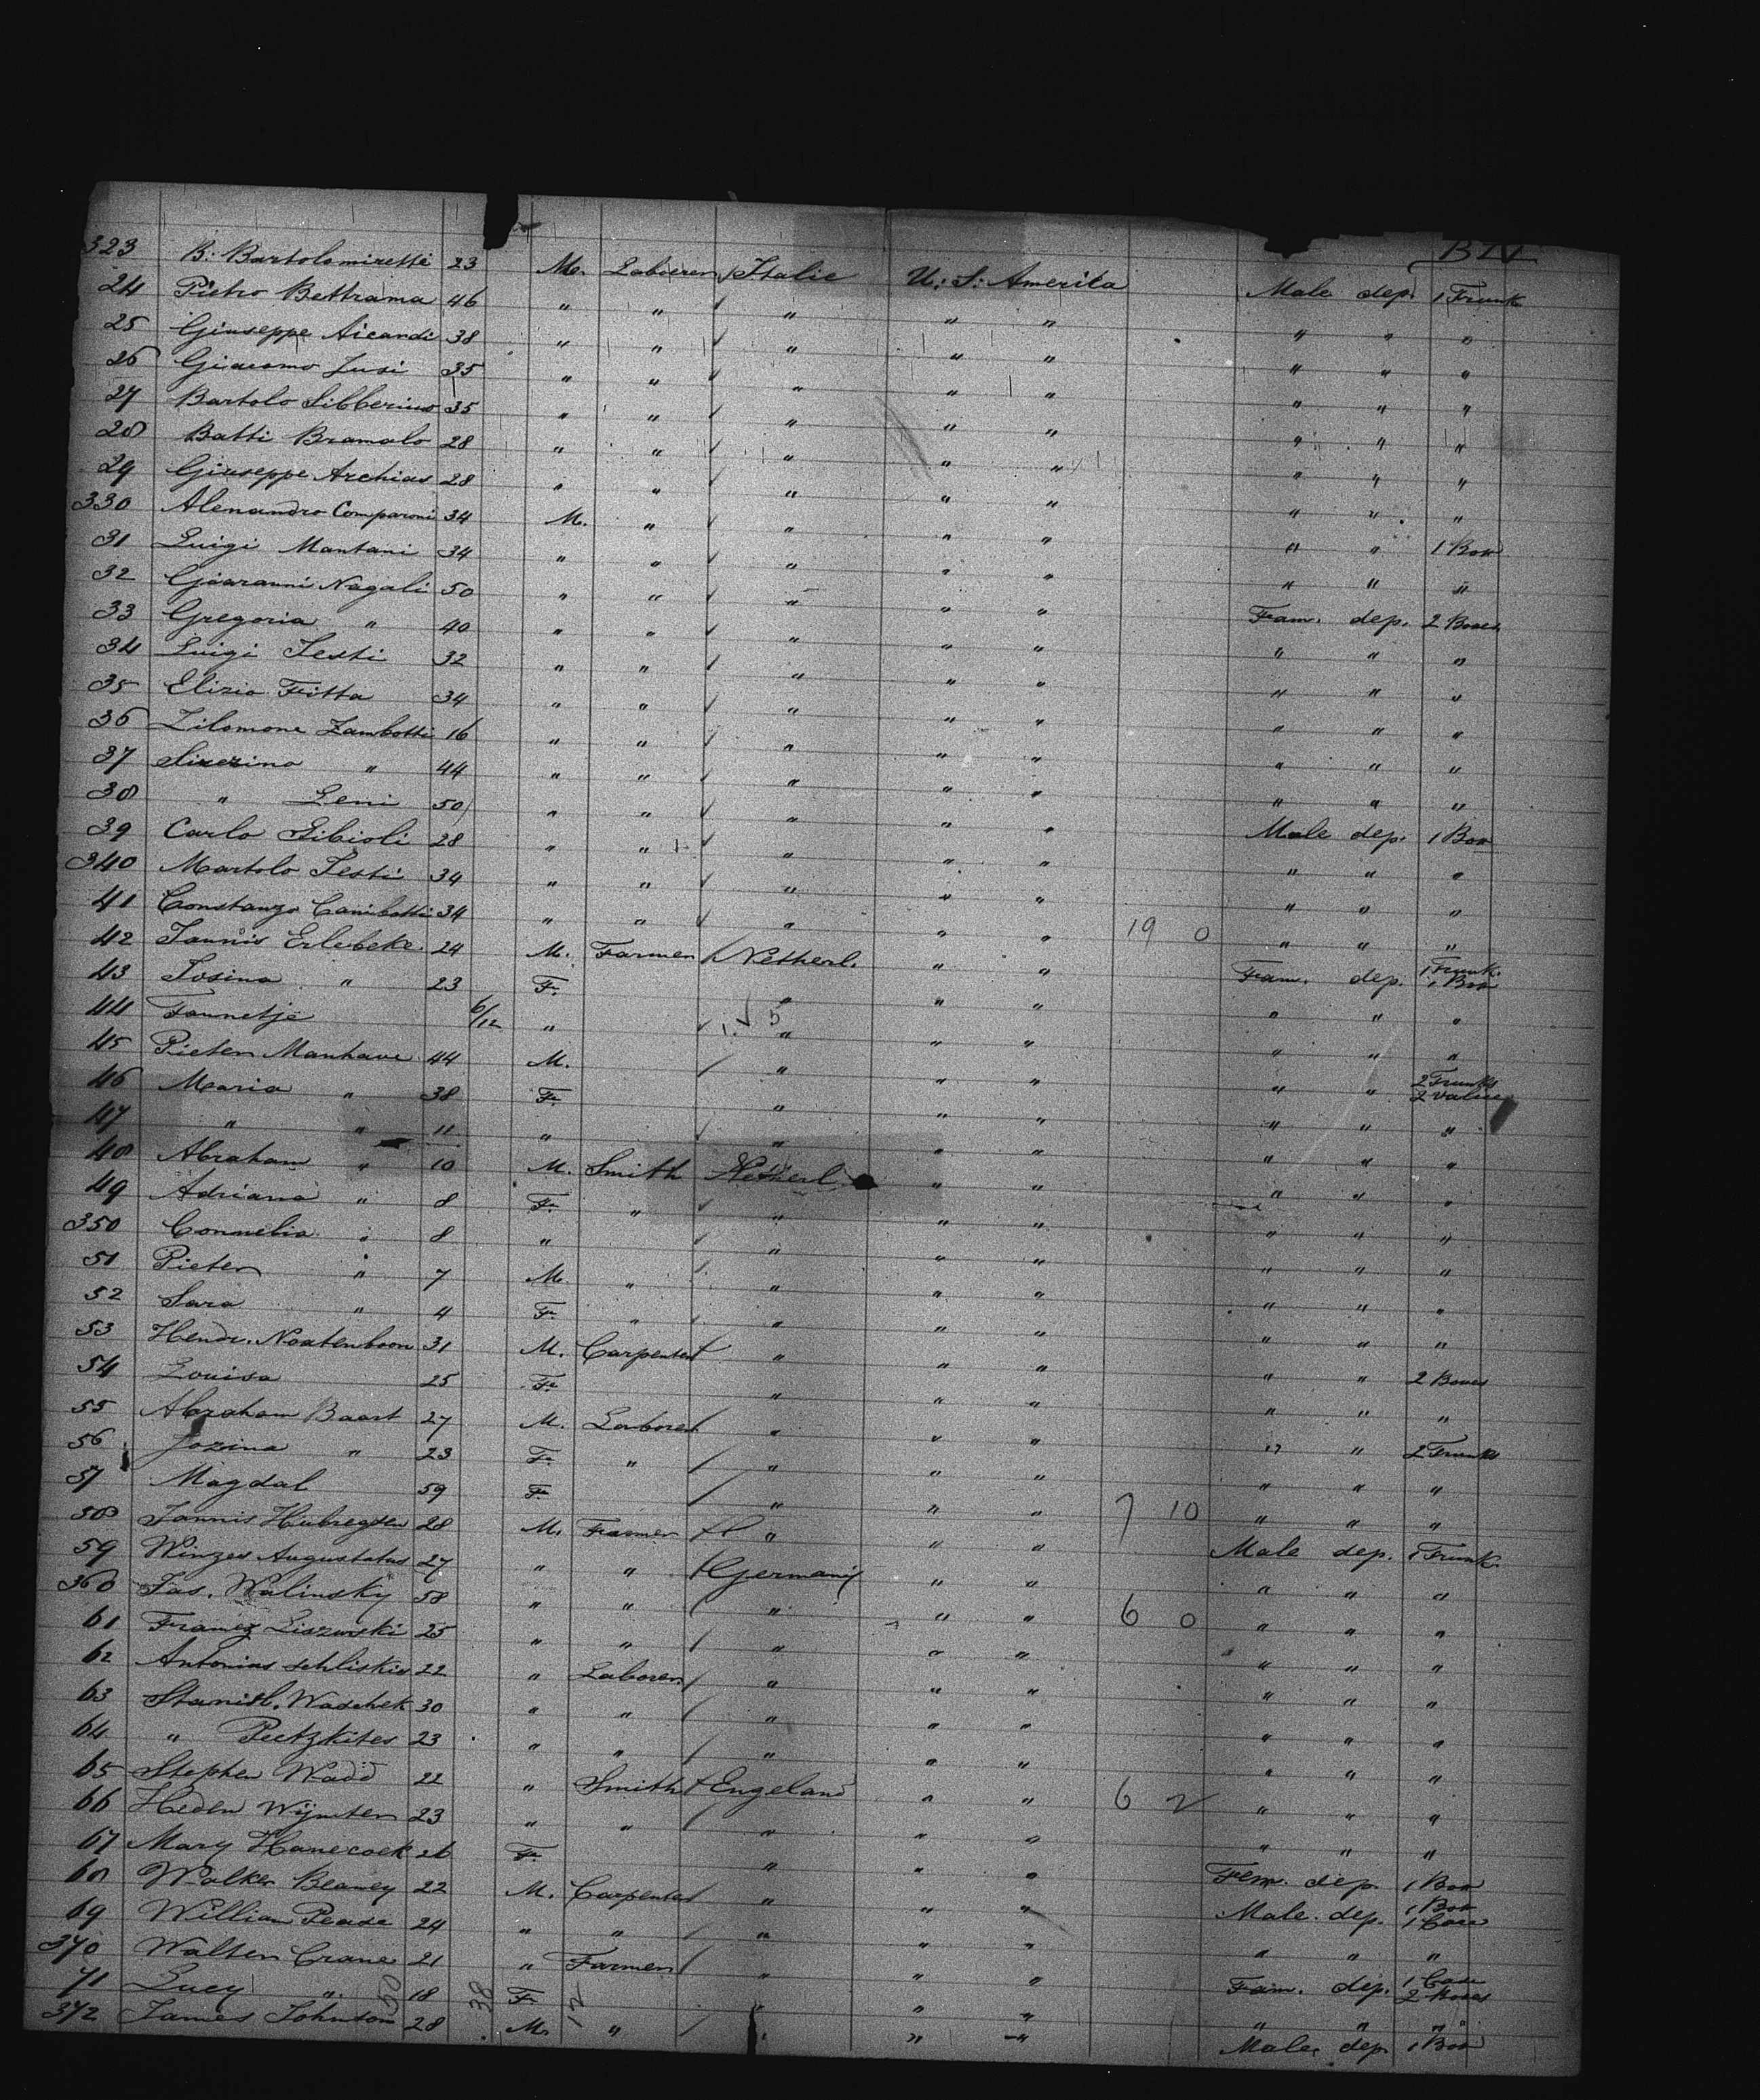 323 B: Bartolomiretti 23 M. Laborer Italie U: S: Amerika Male dep. 1 Trunk
24 Pietro Bettrama 46 " " " " " " " "
25 Giuseppe Aicardi 38 " " " " " " " "
26 Giacomo Lusi 35 " " " " " " " "
27 Bartolo Libberino 35 " " " " " " " "
28 Batti Bramalo 28 " " " " " " " "
29 Giuseppe Archias 28 " " " " " " " "
330 Alenandro Comparoni 34 M. " " " " " " 1 Box
31 Luigi Mantani 34 " " " " " " " "
32 Giovanni Nagali 50 " " " " " Fam. dep. 2 Boxes
33 Gregoria " 40 " " " " " " " "
34 Luigi Testi 32 " " " " " " " "
35 Elizio Fitta 34 " " " " " " " "
36 Zilomone Zambotti 16 " " " " " " " "
37 " 44 " " " " " " " "
38 " Leni 50 " " " " " Male dep. 1 Box
39 Carlo Libioli 28 " " " " " " " "
340 Martolo Testi 34 " " " " " " " "
41 Constanzo Canibotti 34 " " " " " 19 0 " " "
42 Jannis Erlebeke 24 M. Farmer Netherl. " " Fam. dep. 1 Trunk. 1 Box
43 Josina " 23 F. " " " " " "
44 Jannetje 6/12 " " " " " " "
45 Pieter Manhave 44 M. " " " " " 2 Trunks 2 Valies
46 Maria " 38 F. " " " " " "
47 " " 11 " " " " " " "
48 Abraham " 10 M. Smith Netherl " " " " "
49 Adriana " 8 F. " " " " " " "
350 Cornnelia " 8 " " " " " " "
51 Pieter " 7 M. " " " " " " "
52 Sara " 4 F. " " " " " " "
53 Hendr. Noatenboon 31 M. Carpenter " " " " " 2 Boxes
54 Louisa 25 F. " " " " " "
55 Abraham Baart 27 M. Laborer " " " " " 2 Trunks
56 Jozina " 23 F. " " " " " " "
57 Magdal 59 F. " " " 7 10 " " "
58 Jannis Hubregtsen 28 M. Farmer " " " Male dep. 1 Trunk.
59 Winzes Augustatus 27 " " Germany " " " " "
360 Jas. Walinsky 58 " " " " " 6 0 " " "
61 Framez Liszewski 25 " " " " " " " "
62 Antonias Schliskis 22 " Laborer " " " " " "
63 Stanisl. Waschek 30 " " " " " " " "
64 " Peetzkites 23 " " " " " " " "
65 Stephen Wadd 22 " Smith Engeland " " 6 2 " " "
66 Heden Wijnter 23 " " " " " " " "
67 Mary Hanecock 26 F. " " " Fem. dep. 1 Box
68 Walker Beaney 22 M. Carpenter " " " Male. dep. 1 Box 1 Case
69 William Pease 24 " " " " " " " "
370 Walter Crane 21 " Farmer " " " Fam. dep. 1 Case 2 Boxes
71 Lucy " 50 18 38 F. 12 " " " " " "
372 James Johnton 28 M. " " " " Male, dep. 1 Box